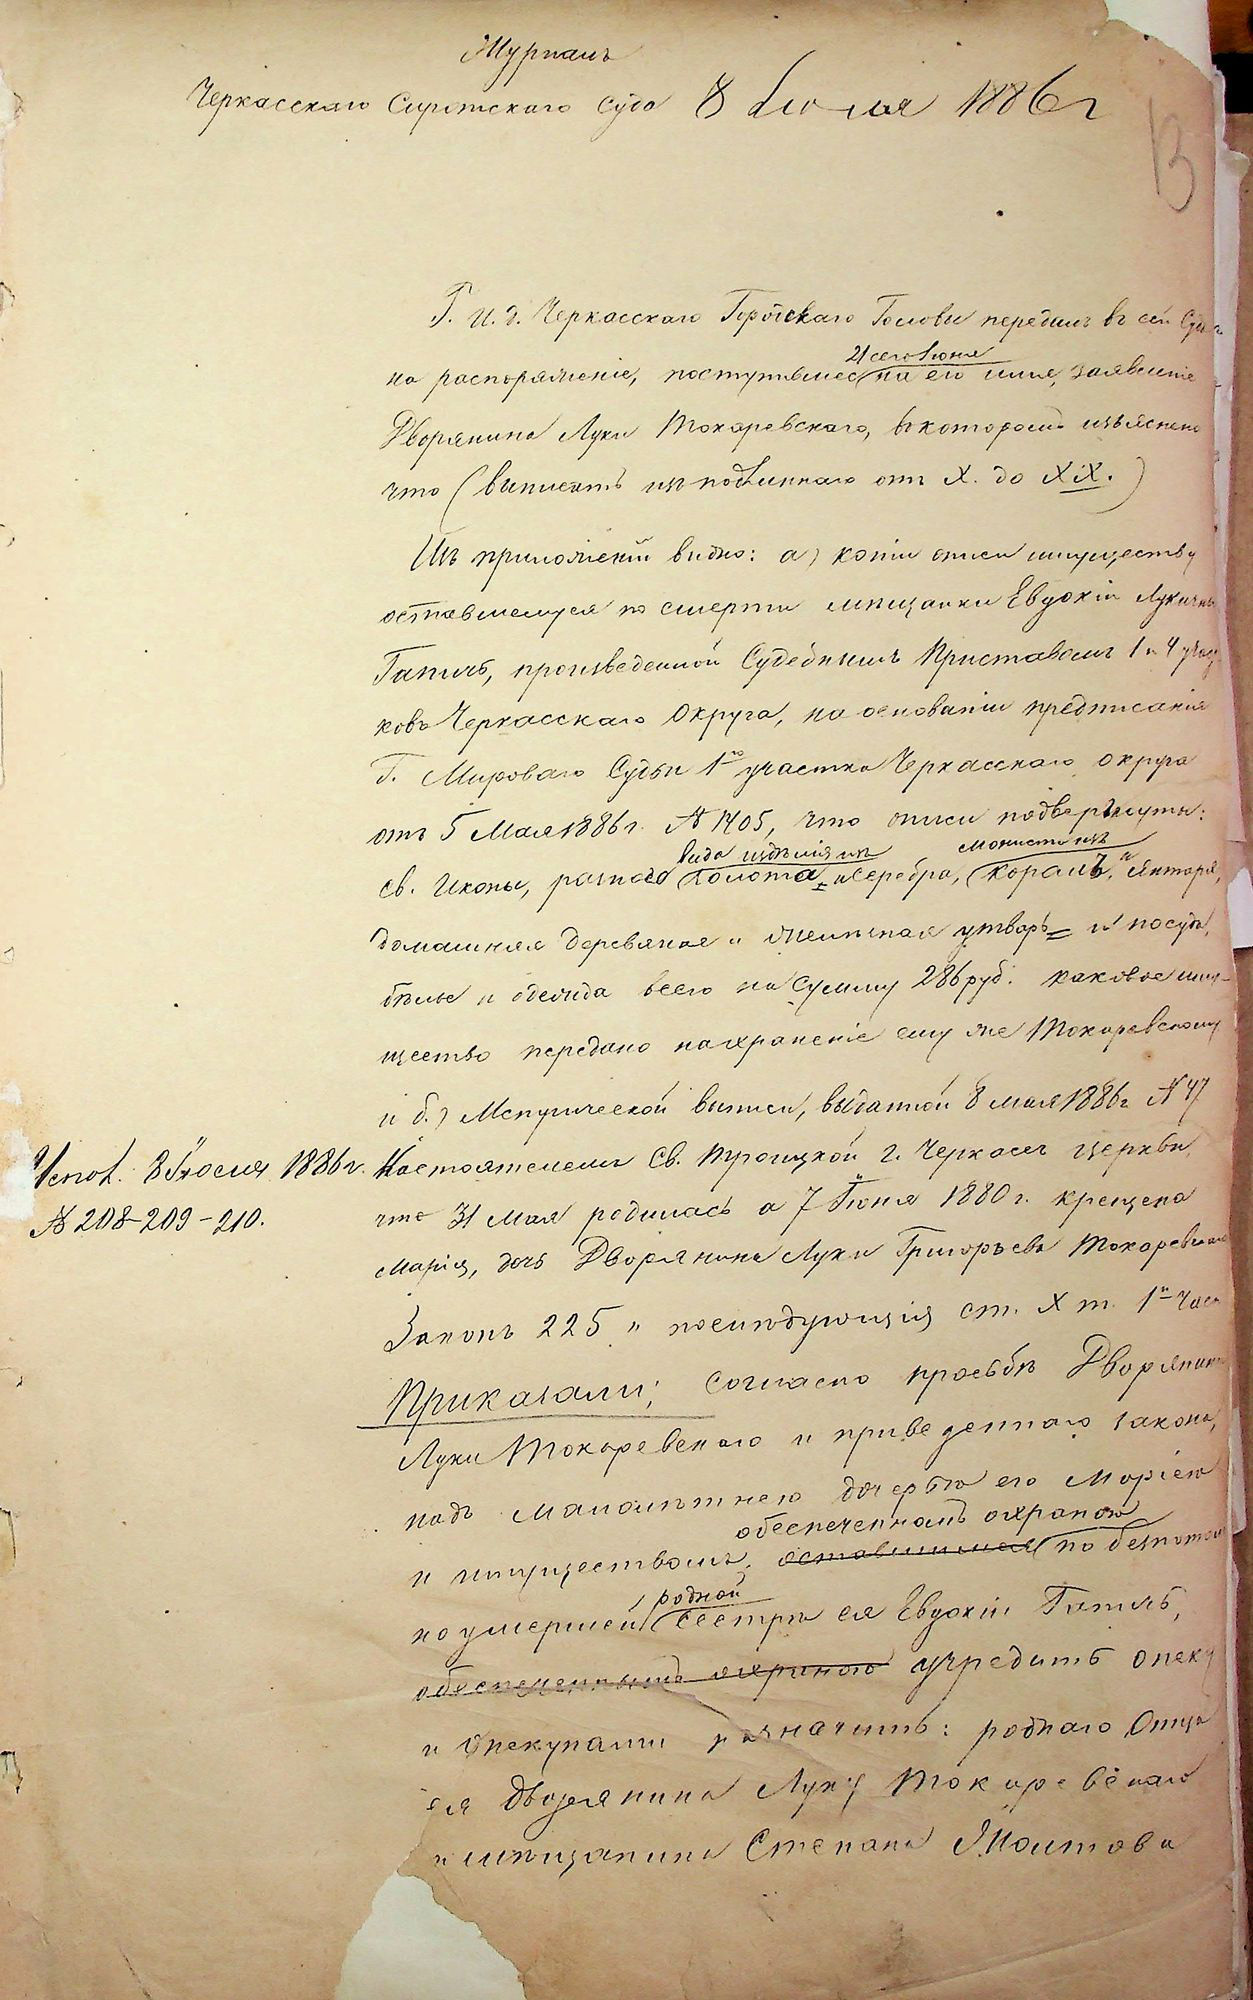 Журналъ
Черкасскаго Сиротскаго Суда 8 Июля 1886 г
13
Г. И. д. Черкасскаго Городскаго Головы передалъ въ сей Судъ
21 сего Июня
на распоряженіе, поступившее на его имя, заявленіе
Дворянина Луки Токаревскаго, въ которомъ изъяснено
что (выписать изъ подлиннаго отъ X. до XIX.)
Изъ приложеній видно: а) копіи описи имуществу
оставшемуся по смерти мещанки Евдокіи Лукичны
Гапичъ, произведенной Судебнымъ Приставомъ 1 и 4 участ
ковъ Черкасскаго Округа, на основаніи предписанія
Г. Мироваго Судьи 1го участка Черкасскаго округа
отъ 5 Мая 1886 г. № 1405, что описи подвергнуты:
вида издѣлія изъ монисто изъ
св. Иконы, разнаго золота и серебра, коралъ и Янтаря,
домашняя деревяная и утварь и посуда,
бѣлье и одежда всего на сумму 286 руб. каковое иму-
щество передано на храненіе ему же Токаревскому
и б.) Метрической выписи, выданной 8 мая 1886 г № 47
Настоятелемъ Св. Троицкой г. Черкасъ церкви,
Испол. 8 Июля 1886 г.
№ 208-209-210.
что 31 Мая родилась а 7 Июня 1880 г. крещена
Марія, дочь Дворянина Луки Григорьева Токаревскаго
Законъ 225 и послѣдующія ст. X т. 1й час
Приказали: согласно просьбѣ Дворянина
Луки Токаревскаго и приведеннаго закона,
надъ малолѣтнею дочерью его Маріею
обеспеченнымъ охраною
и имуществомъ, оставшимся по безпотом
родной
но умершей сестрѣ ея Евдокіи Гапичъ,
обеспеченнымъ охраною учредить опеку
и Опекунами назначить: роднаго Отца
ея дворянина Луку Токаревскаго
и мѣщанина Степана